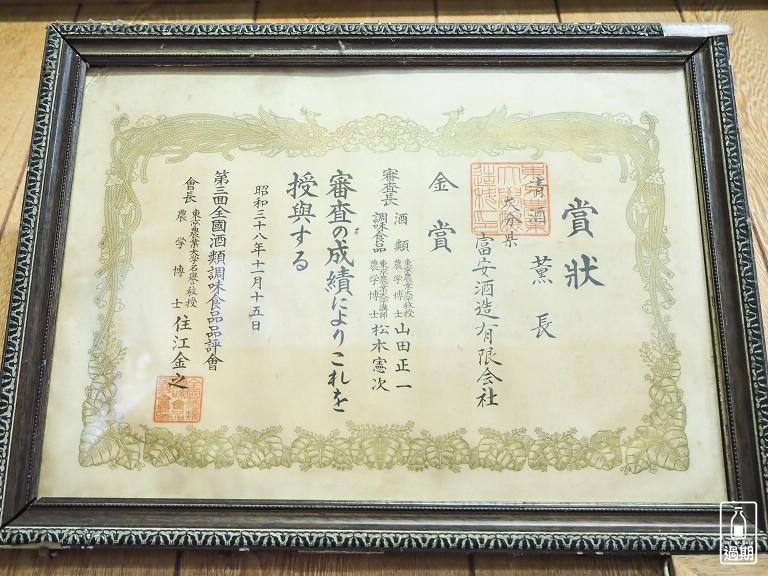 賞狀
清酒 薫長
大分県
富安酒造有限会社
金賞
審査長
酒類 東京農業大学教授 農学博士 山田正一
調味食品 東京農業大学講師 農学博士 松本憲次
審査の成績によりこれを
授與する
昭和三十八年十一月十五日
第三回全國酒類調味食品品評會
會長 東京農業大学名譽教授 農学博士 住江金之
過期